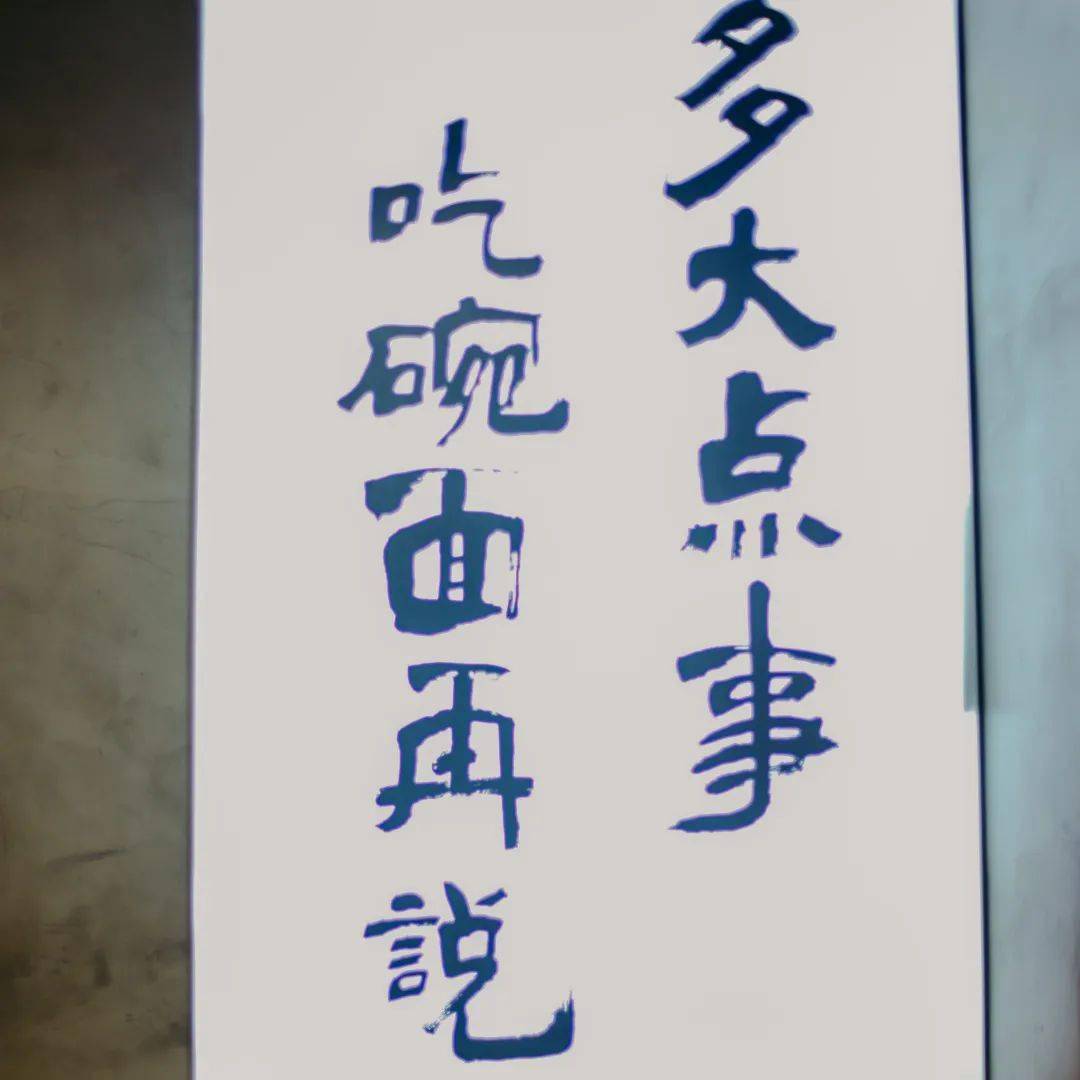 多大点事
吃碗面再説